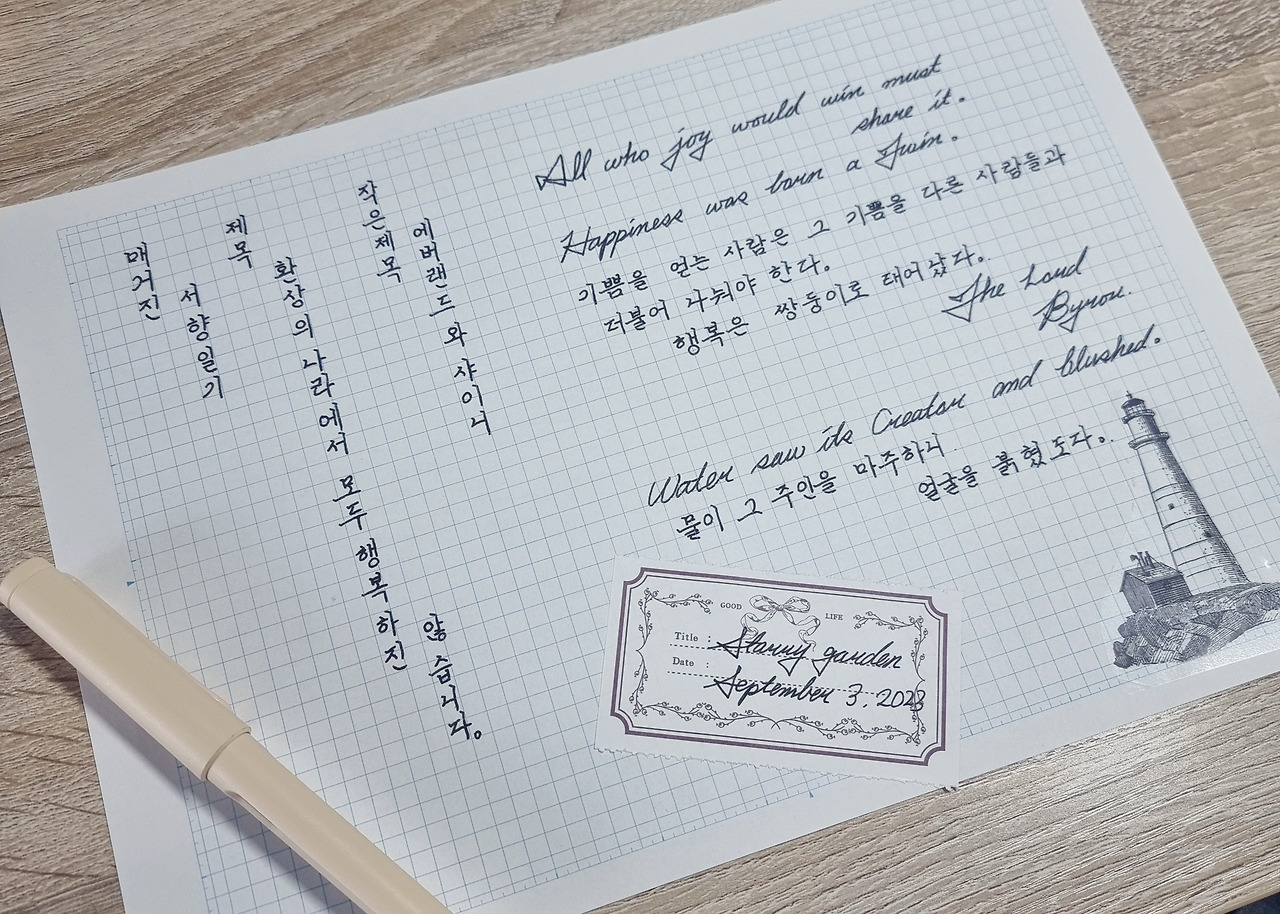 매거진
서향일기
제목
환상의 나라에서 모두 행복하진
않습니다.
작은제목
에버랜드와 샤이니
All who joy would win must
share it.
Happiness was born a Twin.
기쁨을 얻는 사람은 그 기쁨을 다른 사람들과
더불어 나눠야 한다.
행복은 쌍둥이로 태어났다.
The Lord
Byron.
Water saw its Creator and blushed.
물이 그 주인을 마주하니
얼굴을 붉혔도다.
GOOD LIFE
Title : Starry garden
Date : September 3. 2023